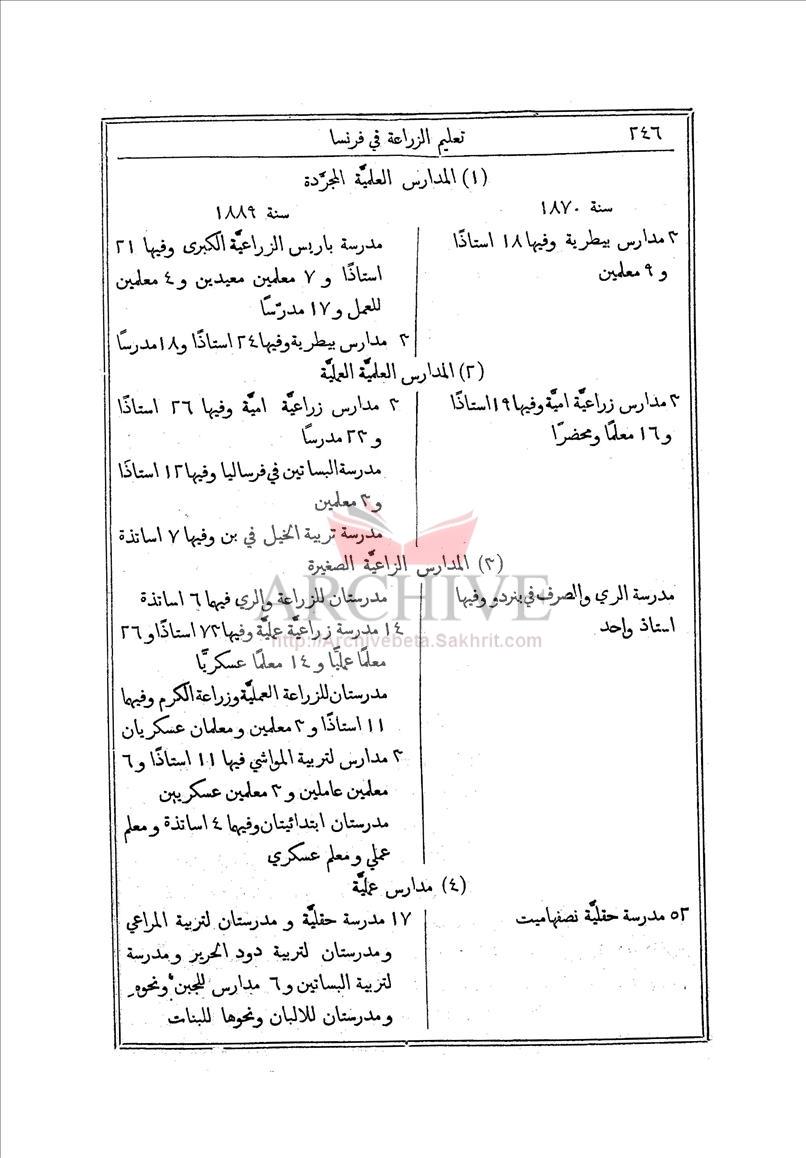 ٢٤٦
تعليم الزراعة في فرنسا
(١) المدارس العلميَّة المجرَّدة
سنة ١٨٧٠
٣ مدارس بيطرية وفيها ١٨ استاذًا
و ٩ معلمين
سنة ١٨٨٩
مدرسة باريس الزراعيَّة الكبرى وفيها ٢١
استاذًا و ٧ معلمين معيدين و ٤ معلمين
للعمل و ١٧ مدرّسًا
٣ مدارس بيطرية وفيها ٢٤ استاذًا و ١٨ مدرسًا
(٢) المدارس العلميَّة العمليَّة
٣ مدارس زراعيَّة اميَّة وفيها ١٩ استاذًا
و ١٦ معلمًا ومحضرًا
٣ مدارس زراعيَّة اميَّة وفيها ٢٦ استاذًا
و ٢٣ مدرسًا
مدرسة البساتين في فرساليا وفيها ١٢ استاذًا
و ٣ معلمين
مدرسة تربية الخيل في بن وفيها ٧ اساتذة
(٣) المدارس الزاعيَّة الصغيرة
مدرسة الري والصرف في بنردو وفيها
استاذ واحد
مدرستان للزراعة والري فيها ٦ اساتذة
١٤ مدرسة زراعيَّة عمليَّة وفيها ٧٢ استاذًا و ٢٦
معلمًا عمليًّا و ١٤ معلمًا عسكريًّا
مدرستان للزراعة العمليَّة وزراعة الكرم وفيهما
١١ استاذًا و ٣ معلمين ومعلمان عسكريان
٣ مدارس لتربية المواشي فيها ١١ استاذًا و ٦
معلمين عاملين و ٣ معلمين عسكريين
مدرستان ابتدائيتان وفيها ٤ اساتذة ومعلم
عملي ومعلم عسكري
(٤) مدارس عمليَّة
٥٢ مدرسة حقليَّة نصفها ميت
١٧ مدرسة حقليَّة و مدرستان لتربية المراعي
ومدرستان لتربية دود الحرير ومدرسة
لتربية البساتين و ٦ مدارس للجبن ونحوه
ومدرستان للالبان ونحوها للبنات
ARCHIVE
http://Archivebeta.Sakhrit.com